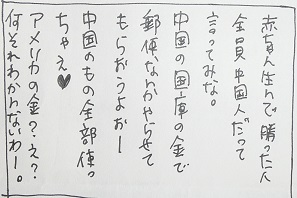 赤ちゃん生んで勝った人
全員中国人だって
言ってみな。
中国の国庫の金で
郵便なんかやらせて
もらおうよおー
中国のもの全部使っ
ちゃえ♥
アメリカの金?え?
何それわかんないわー。